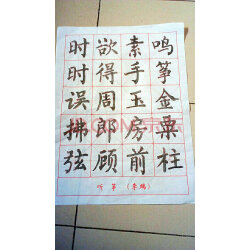 鸣筝金粟柱
素手玉房前
欲得周郎顾
时时误拂弦
听筝（李端）